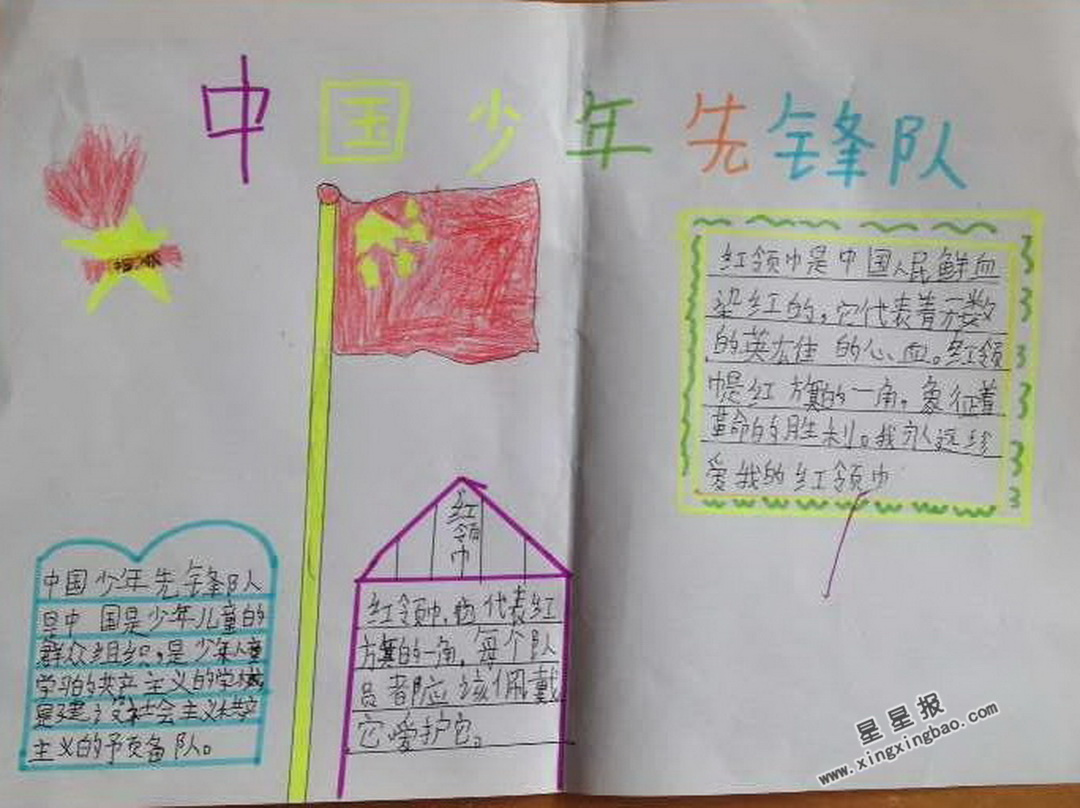 中国少年先锋队
红领巾是中国人民鲜血
染红的,它代表着无数
的英雄 的心血。红领
巾是红方旗的一角,象征着
革命的胜利。我永远珍
爱我的红领巾
中国少年先锋队
是中国是少年儿童的
群众组织,是少年儿童
学习的共产主义的学
是建设社会主义共产
主义的予备队。
红领巾
红领巾,代表红
方旗的一角,每个队
员都应该佩戴
它爱护它。
星星报
www.xingxingbao.com